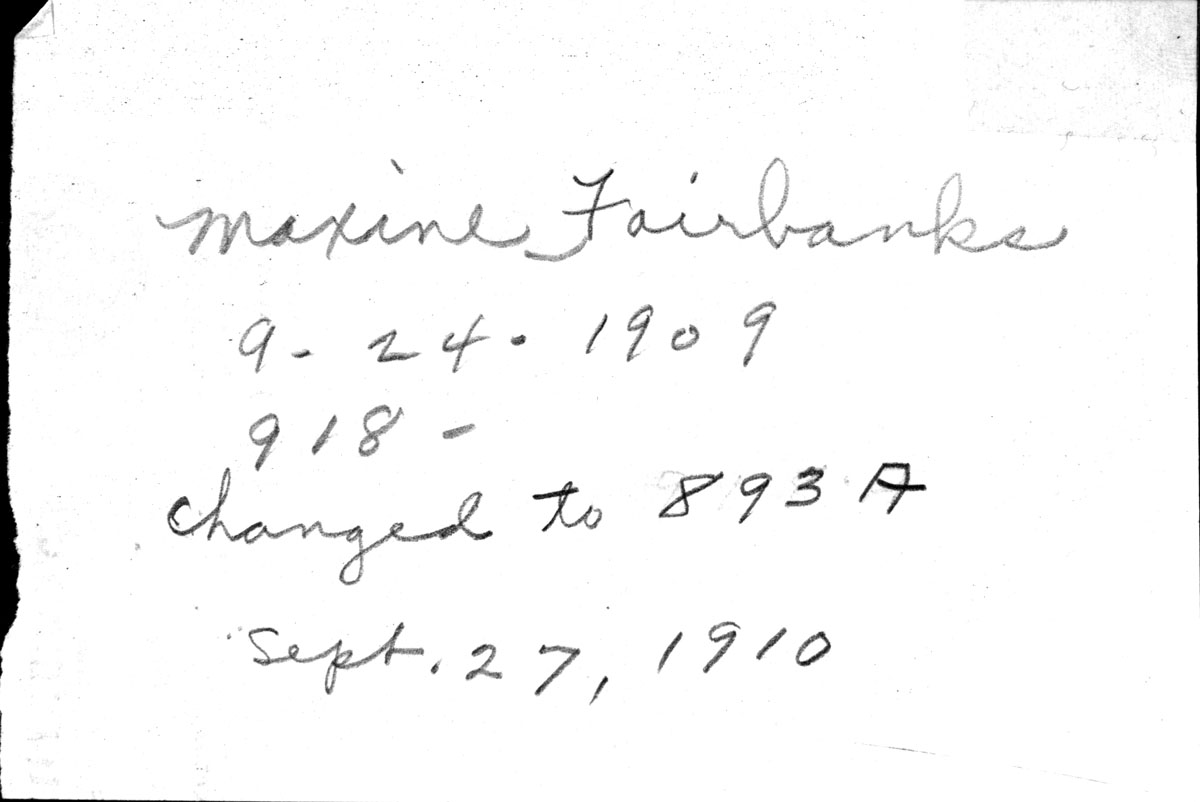 Maxine Fairbanks
9-24-1909
918-
changed to 893 A
Sept. 27, 1910